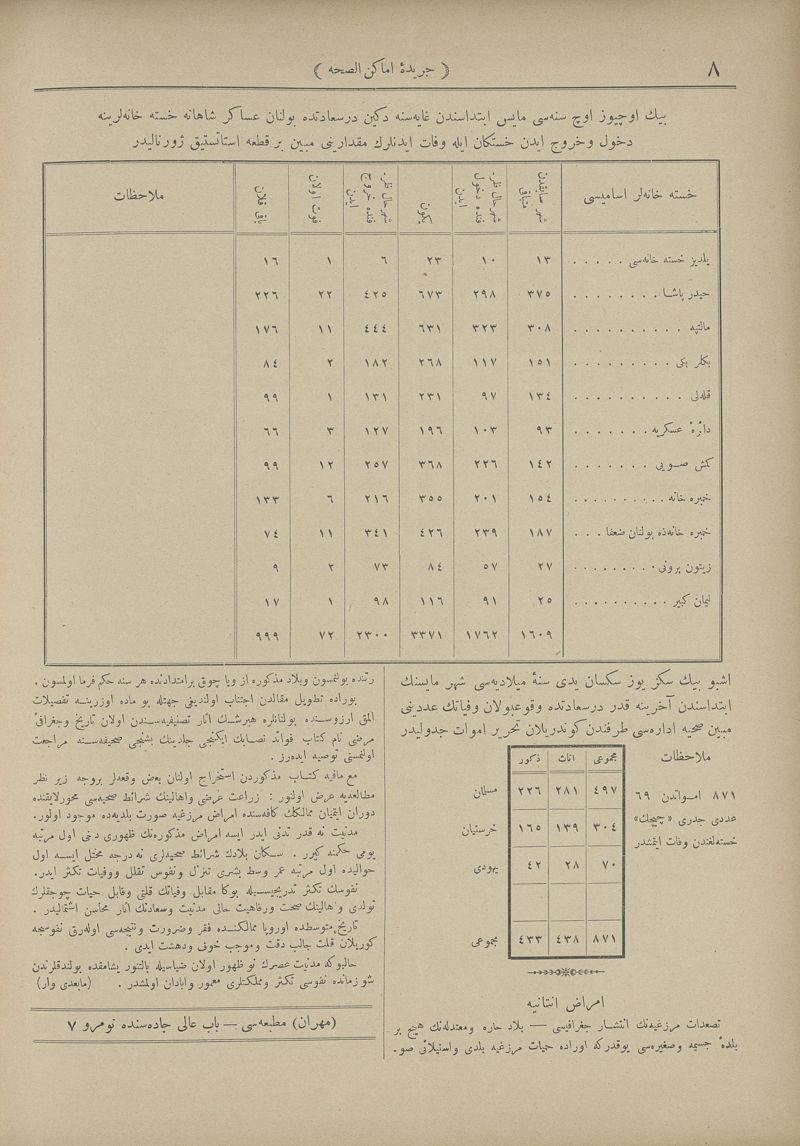 ٨
﴿ جریدهٔ اماکن الصحه ﴾
بیك اوچیوز اوچ سنه‌سی مایس ابتداسندن غایه‌سنه دكین درسعادتده بولنان عساكر شاهانه خسته خانه‌لرینه
دخول وخروج ایدن خستكان ایله وفات ایدنلرك مقدارینی مبین بر قطعه استاتستیق ژورنالیدر
خسته خانه‌لر اسامیسی | شهر سابقدن مباقی | شهر حال ظرفنده دخول ایدن | یكون | شهر حال ظرفنده خروج ایدن | فوت اولان | باقی قلان | ملاحظات
یلدیز خسته خانه‌سی . . . . . ١٣ ١٠ ٢٣ ٦ ١ ١٦
حیدر پاشا . . . . . . . . ٣٧٥ ٢٩٨ ٦٧٣ ٤٢٥ ٢٢ ٢٢٦
مالتپه . . . . . . . . . . ٣٠٨ ٣٢٣ ٦٣١ ٤٤٤ ١١ ١٧٦
بكلر بكی . . . . . . . . . ١٥١ ١١٧ ٢٦٨ ١٨٢ ٢ ٨٤
قله‌لی . . . . . . . . . . ١٣٤ ٩٧ ٢٣١ ١٣١ ١ ٩٩
دائرهٔ عسكریه . . . . . . . ٩٣ ١٠٣ ١٩٦ ١٢٧ ٣ ٦٦
كش صویی . . . . . . . ١٤٢ ٢٢٦ ٣٦٨ ٢٥٧ ١٢ ٩٩
خمبره خانه . . . . . . . . . . ١٥٤ ٢٠١ ٣٥٥ ٢١٦ ٦ ١٣٣
خمبره خانه‌ده بولنان ضعفا . . . ١٨٧ ٢٣٩ ٤٢٦ ٣٤١ ١١ ٧٤
زیتون برونی . . . . . . . . . ٢٧ ٥٧ ٨٤ ٧٣ ٢ ٩
لیمان كبیر . . . . . . . . . . ٢٥ ٩١ ١١٦ ٩٨ ١ ١٧
١٦٠٩ ١٧٦٢ ٣٣٧١ ٢٣٠٠ ٧٢ ٩٩٩
اشبو بیك سكز یوز سكسان یدی سنهٔ میلادیه‌سی شهر مایسنك
ابتداسندن آخرینه قدر درسعادتده وقوعبولان وفیاتك عددینی
مبین صحیه اداره‌سی طرفندن كوندریلان تحریر اموات جدولیدر
ملاحظات
٨٧١ امواتدن ٦٩
عددی جدری «چیچك»
خسته‌لغندن وفات ایتمشدر
مجموعی | اناث | ذكور
٤٩٧ ٢٨١ ٢٢٦ مسلمان
٣٠٤ ١٣٩ ١٦٥ خرستیان
٧٠ ٢٨ ٤٢ یهودی
٨٧١ ٤٣٨ ٤٣٣ مجموعی
امراض انتانیه
تصعدات مرزغیه‌نك انتشار جغرافیسی — بلاد حاره ومعتدله‌نك هیچ بر
بلدهٔ جسیمه وصغیره‌سی یوقدركه اوراده حمیات مرزغیه بلدی واستیلائی صو.
رتنده بولنمسون وبلاد مذكوره از ویا چوق برامتدادنده هر سنه حكم فرما اولمسون .
بوراده تطویل مقالدن اجتناب اولندیغی جهتله بو ماده اوزرینه تفصیلات
المق ارزوسنده بولنانلره هیرشك اثار تصنیفیه‌سندن اولان تاریخ وجغرافیٔ
مرضی نام كتاب فوائد نصابك ایكنجی جلدینك بشنجی صحیفه‌سنه مراجعت
اولنمسنی توصیه ایده‌رز .
مع مافیه كتاب مذكوردن استخراج اولنان بعض وقعه‌لر بروجه زیر نظر
مطالعه‌یه عرض اولنور : زراعت غرضی واهالینك شرائط صحیه‌سی محورلایقنده
دوران ایتمیان ممالكك كافه‌سنده امراض مرزغیه صورت بلدیه‌ده موجود اولور.
مدنیت نه قدر تدنی ایدر ایسه امراض مذكوره‌نك ظهوری دخی اول مرتبه
یومی حكمنه كیرر . سكان بلادك شرائط صحیه‌لری نه درجه مختل ایسه اول
حوالیده اول مرتبه عمر وسط بشری تنزل ونفوس تقلل ووفیات تكثر ایدر.
نفوسك تكثر تدریجیسیله بوكا مقابل وفیاتك قلتی وقابل حیات چوجقلرك
تولدی واهالینك صحت ورفاهیت حالی مدنیت وسعادتك اثار محاسن اشتمالیدر .
تاریخ متوسطده اوروپا ممالكنده فقر وضرورت ونتیجه‌سی اوله‌رق نفوسجه
كوریلان قلت جالب دقت وموجب خوف ودهشت ایدی .
حالبوكه مدنیت عصرك نو ظهور اولان ضیاسیله بالتنور یشامقده بولندقلرندن
شو زمانده نفوسی تكثر ومملكتلری معمور وابادان اولمشدر . (مابعدی وار)
(مهران) مطبعه‌سی — باب عالی جاده‌سنده نومرو ٧